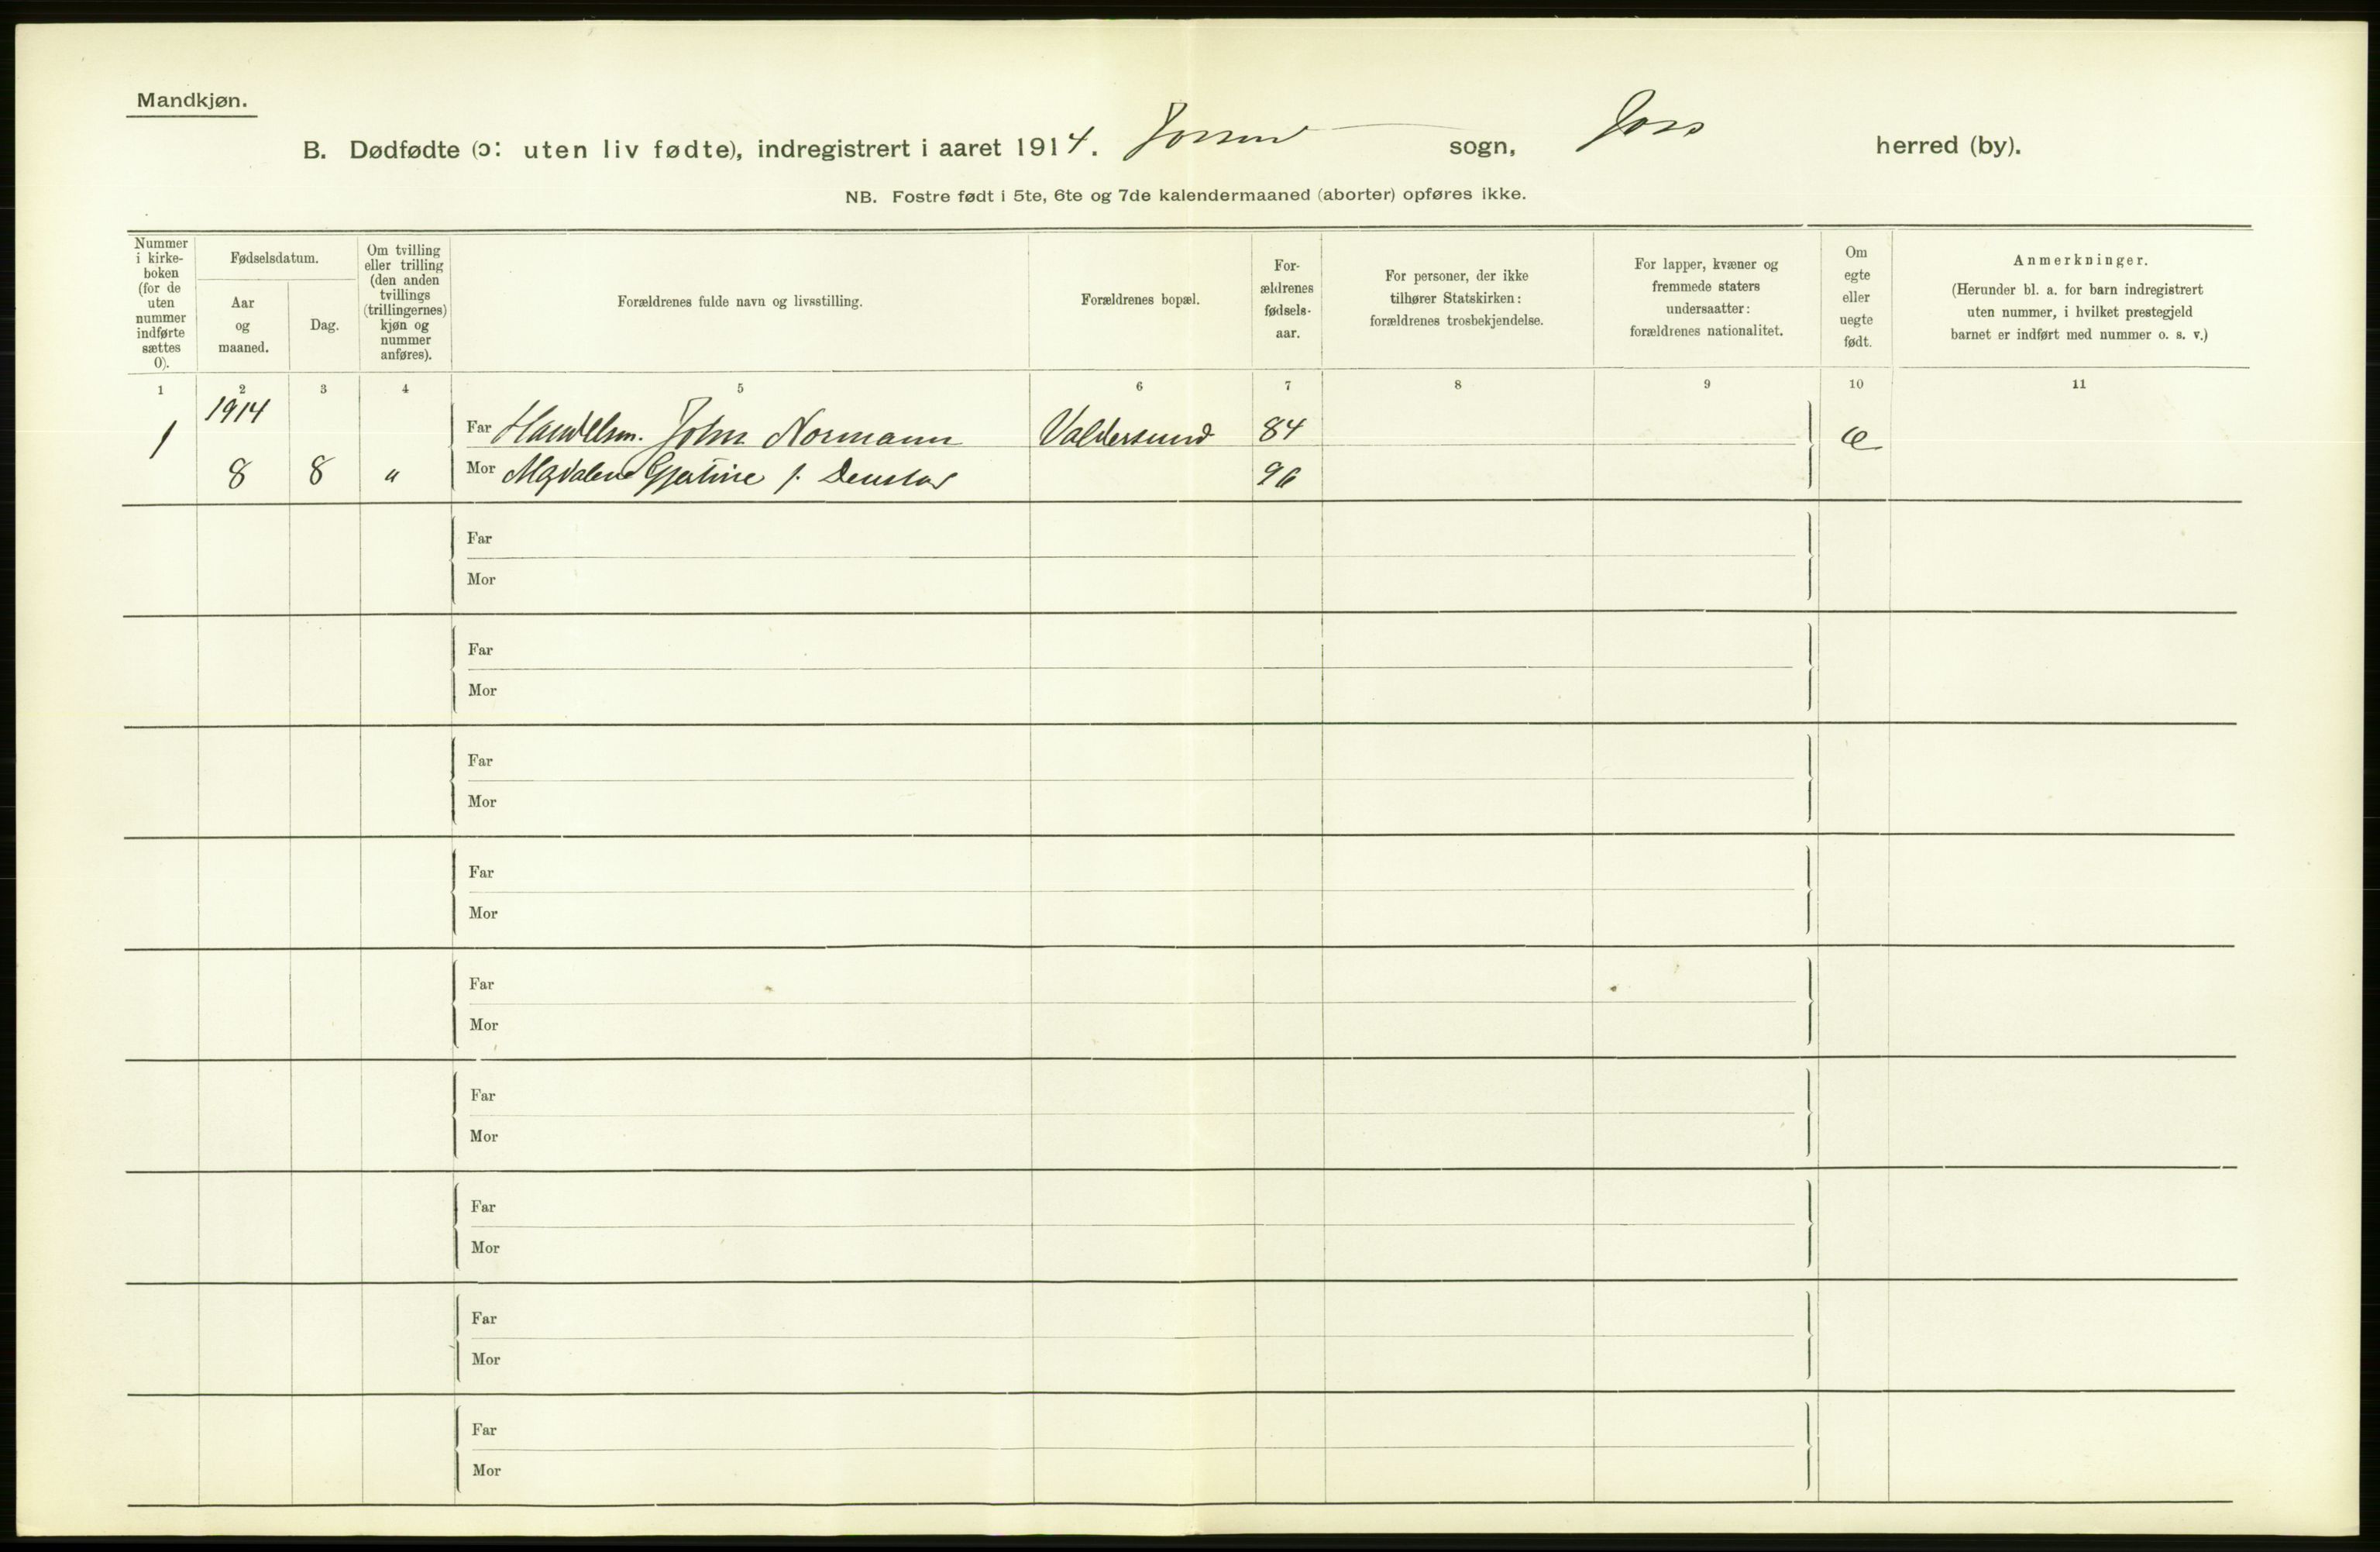 Mandkjøn.
B. Dødfødte (ɔ: uten liv fødte), indregistrert i aaret 1914. Jossund sogn, herred (by).
NB. Fostre født i 5te, 6te og 7de kalendermaaned (aborter) opføres ikke.
Nummer
i kirke-
boken
(for de
uten
nummer
indførte
sættes
0).
Fødselsdatum.
Aar
og
maaned.
Dag.
Om tvilling
eller trilling
(den anden
tvillings
(trillingernes)
kjøn og
nummer
anføres).
Forældrenes fulde navn og livsstilling.
Forældrenes bopæl.
For-
ældrenes
fødsels-
aar.
For personer, der ikke
tilhører Statskirken:
forældrenes trosbekjendelse.
For lapper, kvæner og
fremmede staters
undersaatter:
forældrenes nationalitet.
Om
egte
eller
uegte
født.
Anmerkninger.
(Herunder bl. a. for barn indregistrert
uten nummer, i hvilket prestegjeld
barnet er indført med nummer o. s. v.)
1 2 3 4 5 6 7 8 9 10 11
1914
1 Far Handelsm. John Normann Valdersund 84 e
8 8 " Mor Magdalene Gjertine f. 96
Far
Mor
Far
Mor
Far
Mor
Far
Mor
Far
Mor
Far
Mor
Far
Mor
Far
Mor
Far
Mor